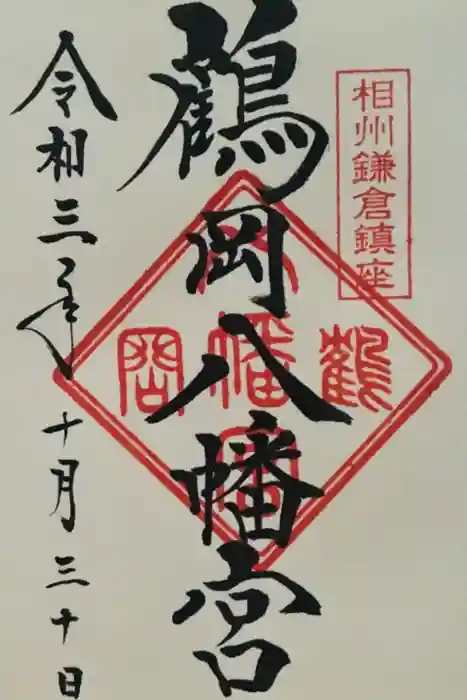 相州鎌倉鎮座
鶴岡八幡宮
鶴
八
幡
宮
岡
令和三年十月三十日